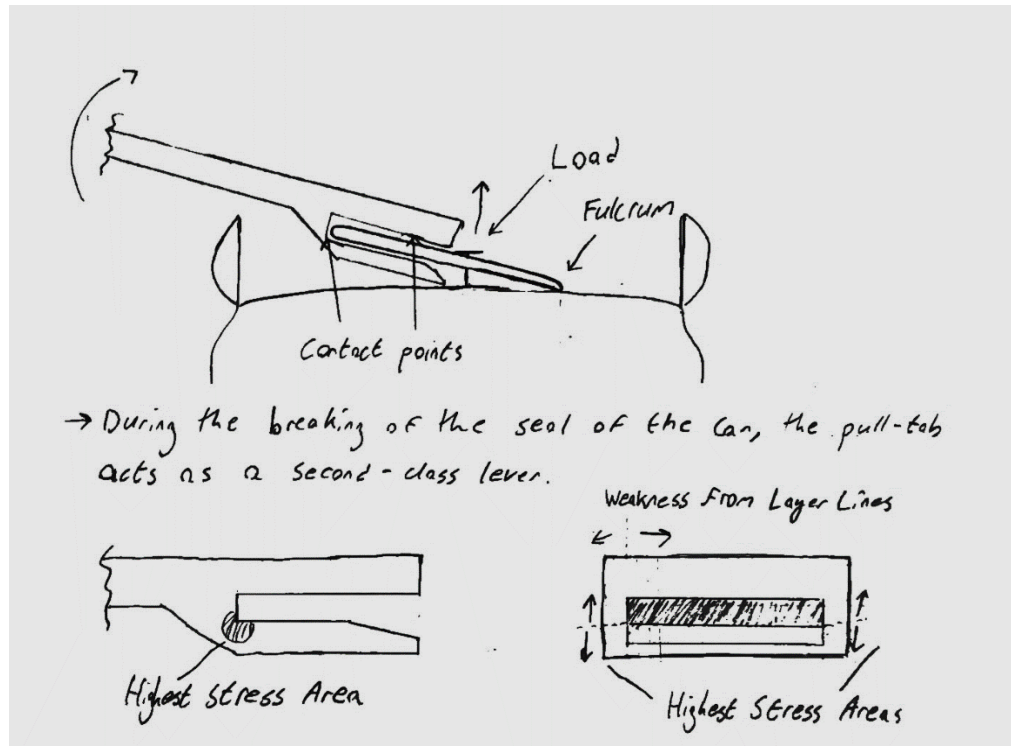 Load
Fulcrum
Contact points
→ During the breaking of the seal of the can, the pull-tab
acts as a second-class lever.
Weakness From Layer Lines
Highest Stress Area
Highest Stress Areas